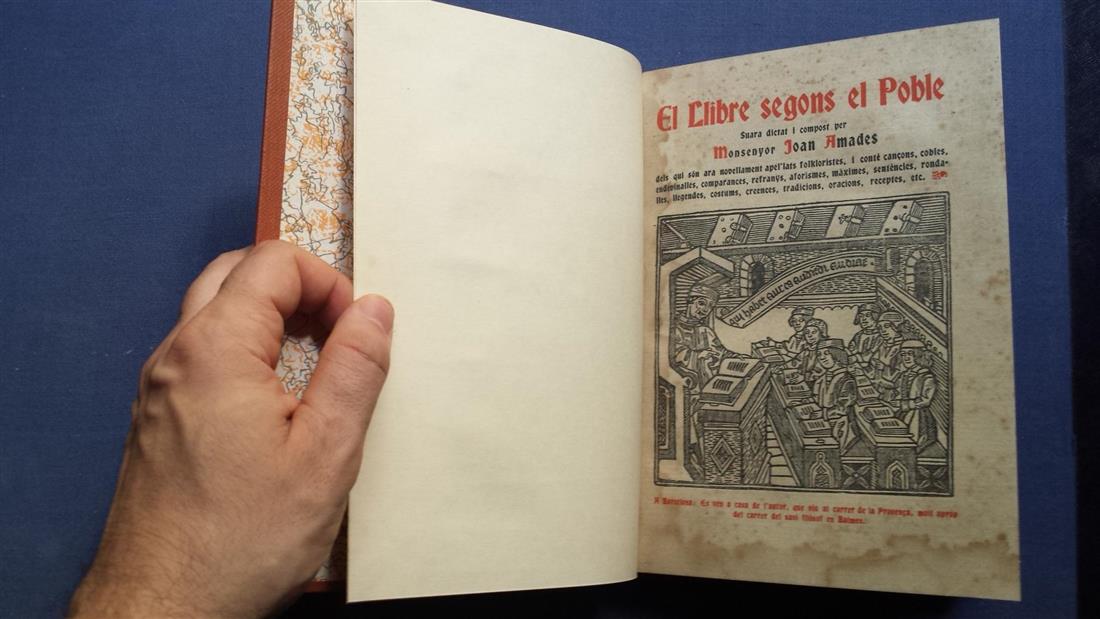 El Llibre segons el Poble
Suara dictat i compost per
Monsenyor Joan Amades
dels qui són ara novellament apel'lats folkloristes, i conté cançons, cobles,
endevinalles, comparances, refranys, aforismes, màximes, sentències, ronda-
lles, llegendes, costums, creences, tradicions, oracions, receptes, etc.
qui habet aures audiendi audiat
A Barcelona: Es ven a casa de l'autor, que viu al carrer de la Provença, molt aprop
del carrer del savi filòsof en Balmes.